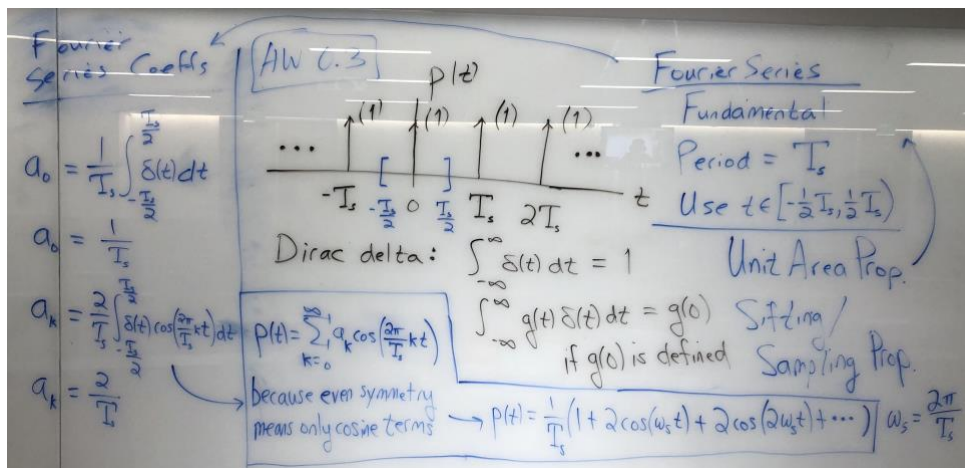 Fourier
Series Coeffs
a₀ = 1/Tₛ ∫_{-Tₛ/2}^{Tₛ/2} δ(t) dt
a₀ = 1/Tₛ
aₖ = 2/Tₛ ∫_{-Tₛ/2}^{Tₛ/2} δ(t) cos(2π/Tₛ kt) dt
aₖ = 2/Tₛ
HW 0.3
p(t)
(1) (1) (1) (1)
... [ ] ...
-Tₛ -Tₛ/2 0 Tₛ/2 Tₛ 2Tₛ t
Dirac delta: ∫_{-∞}^{∞} δ(t) dt = 1
∫_{-∞}^{∞} g(t) δ(t) dt = g(0)
if g(0) is defined
p(t) = ∑_{k=0}^{∞} aₖ cos(2π/Tₛ kt)
because even symmetry
means only cosine terms
→ p(t) = 1/Tₛ (1 + 2cos(ωₛt) + 2cos(2ωₛt) + ⋯) ωₛ = 2π/Tₛ
Fourier Series
Fundamental
Period = Tₛ
Use t ∈ [-½Tₛ, ½Tₛ)
Unit Area Prop.
Sifting/
Sampling Prop.